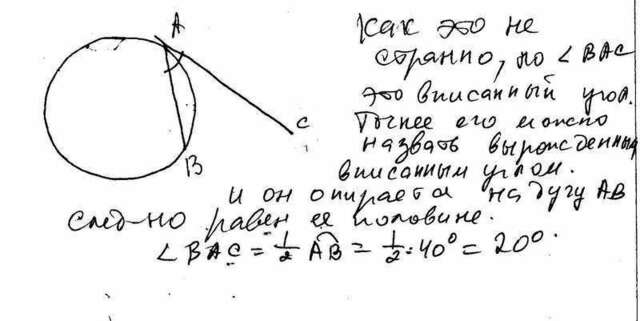 A
C
B
Как это не
странно, но ∠ВАС
это вписанный угол.
Точнее его можно
назвать вырожденным
вписанным углом.
и он опирается на дугу АВ
след-но равен ее половине.
∠BAC = 1/2 A͡B = 1/2 · 40° = 20°.